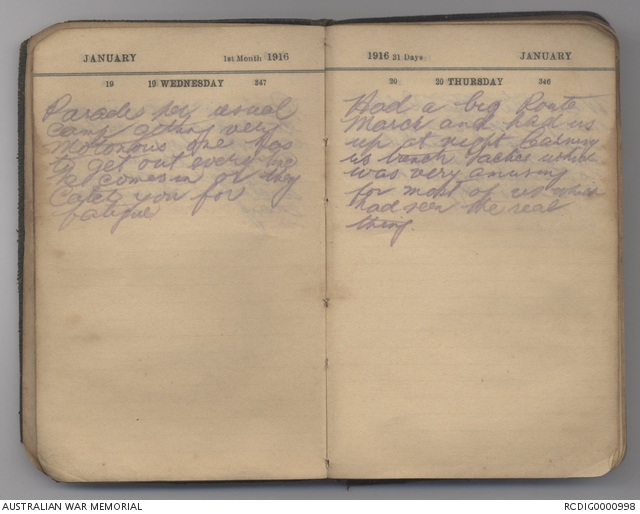 JANUARY 1st Month 1916
19 19 WEDNESDAY 347
Parades per usual
camp getting very
motonous one has
to get out every time
comes in or they
catch you for
fatigue
1916 31 Days JANUARY
20 20 THURSDAY 346
Had a big Route
March and had us
up at night learning
us trench tactics which
was very amusing
for most of us which
had seen the real
thing.
AUSTRALIAN WAR MEMORIAL
RCDIG0000998